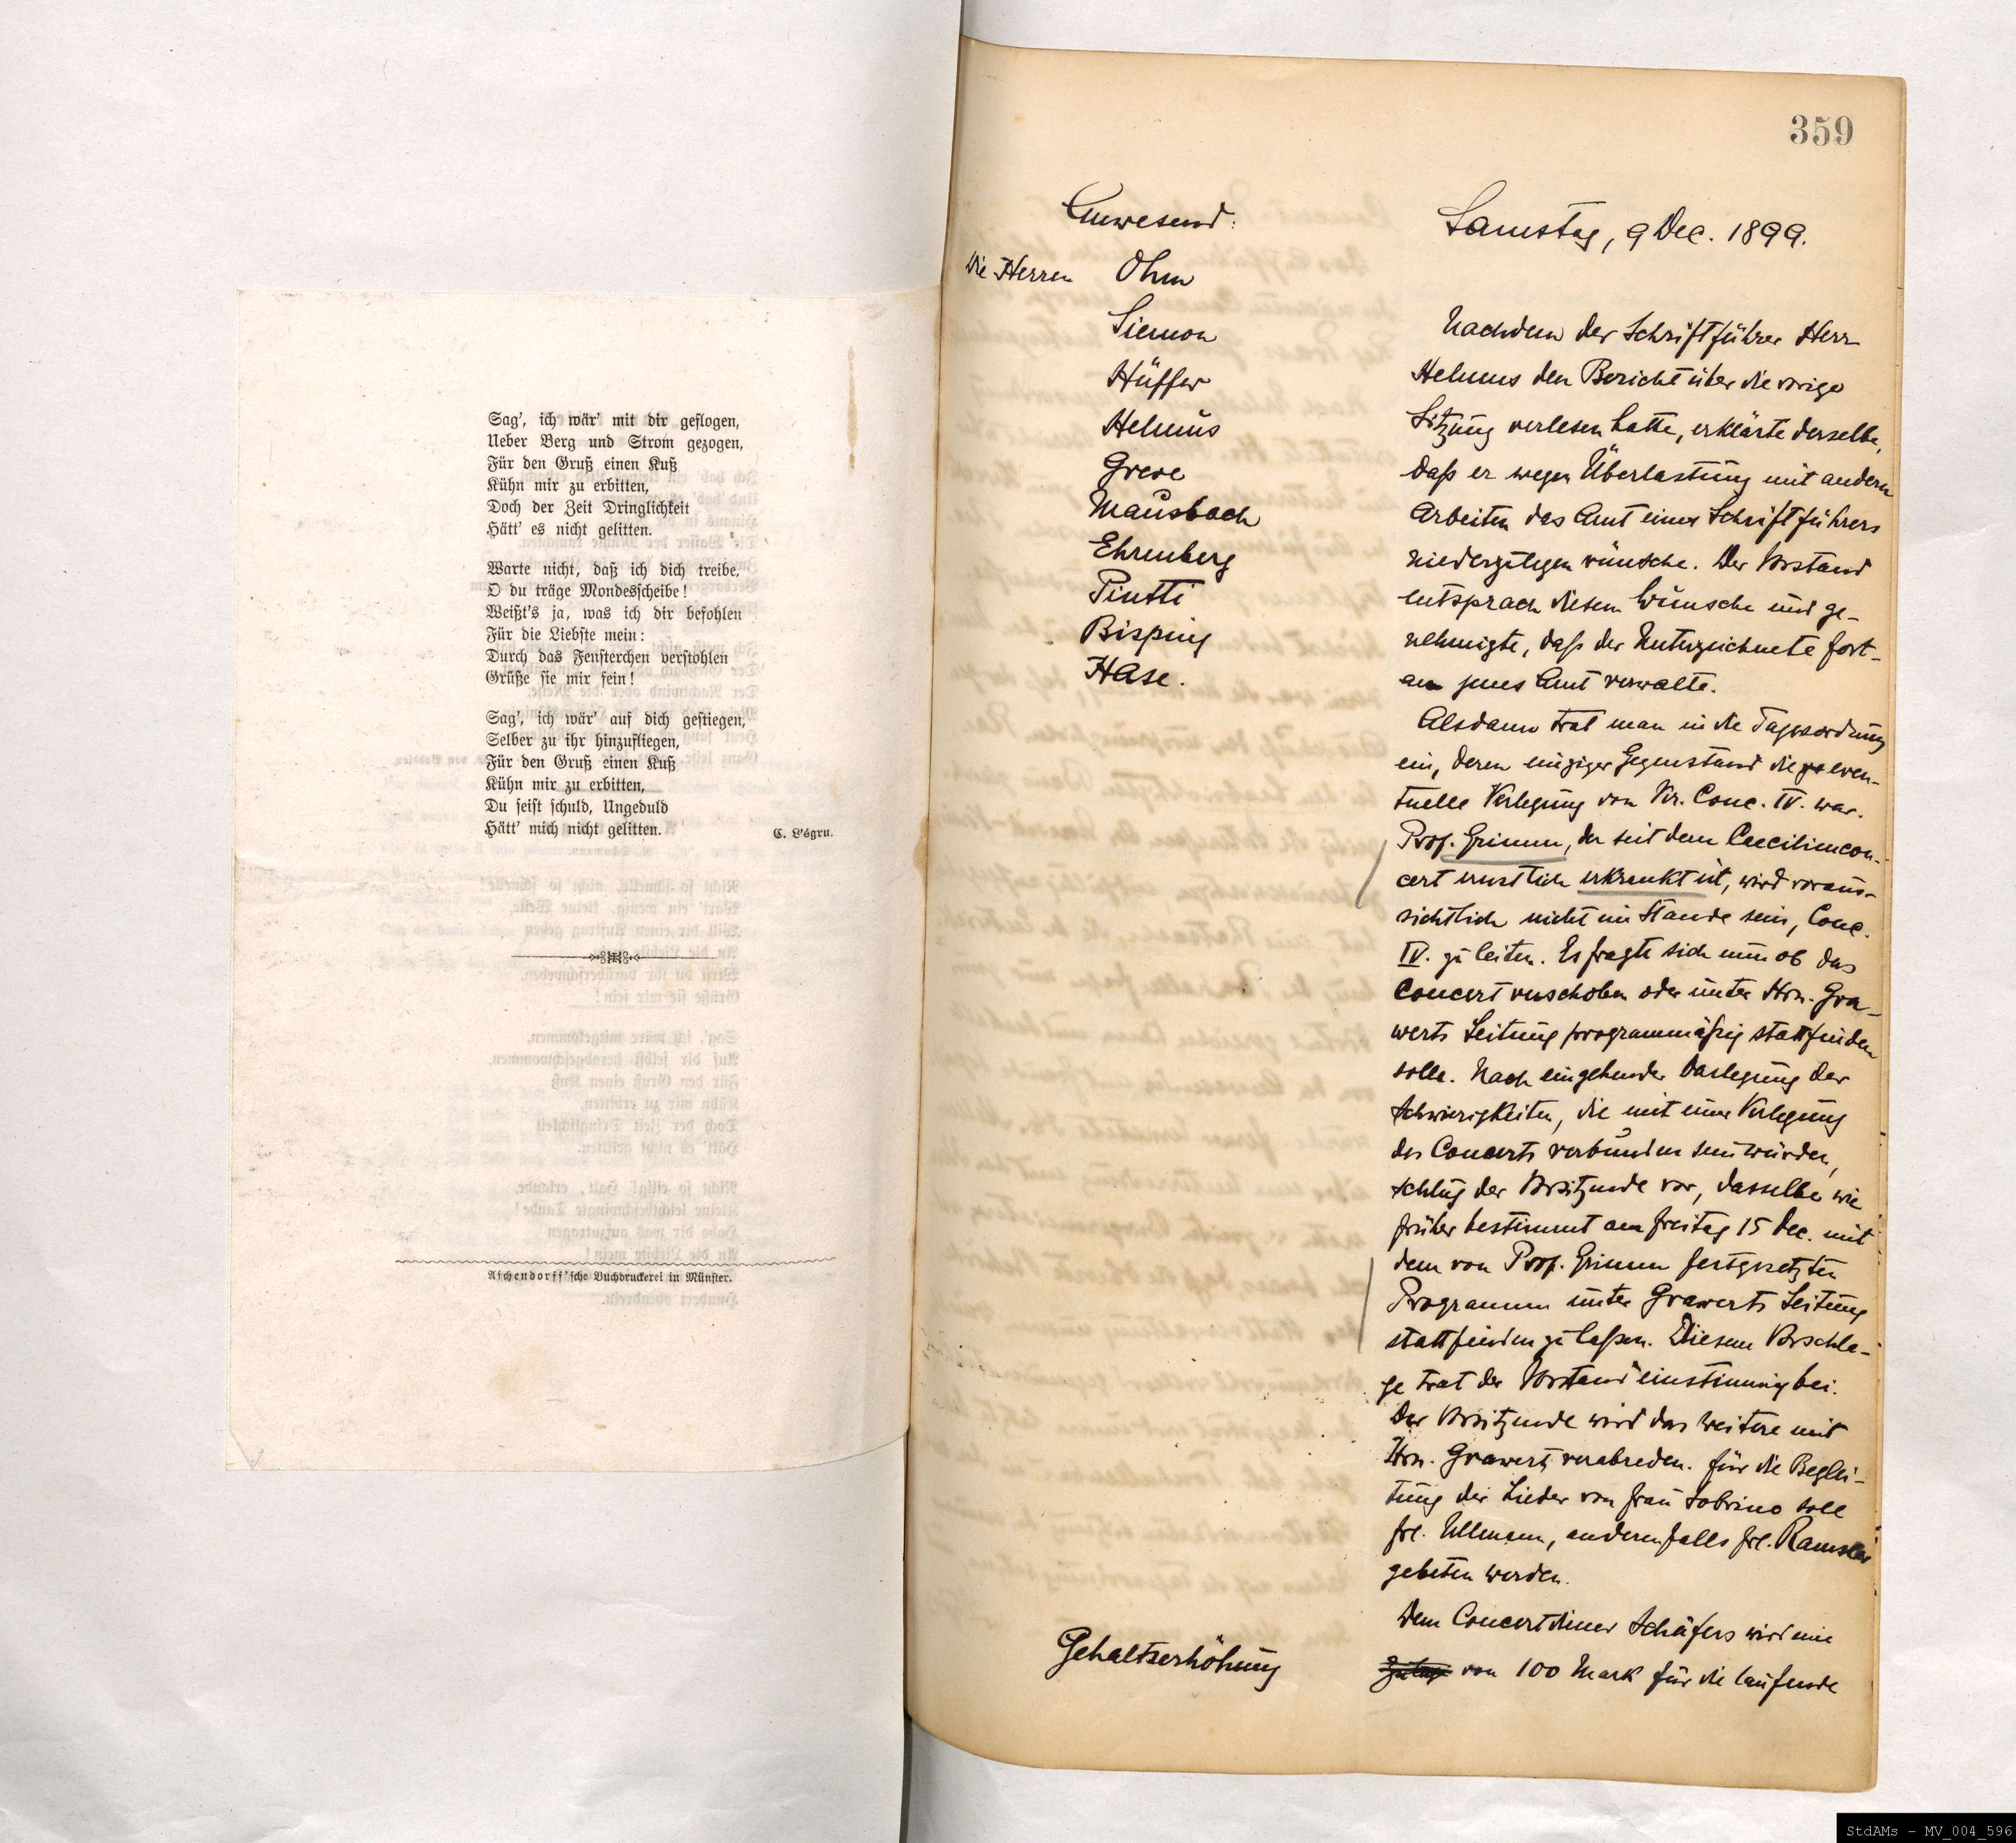 Sag', ich wär' mit dir geflogen,
Ueber Berg und Strom gezogen,
Für den Gruß einen Kuß
Kühn mir zu erbitten,
Doch der Zeit Dringlichkeit
Hätt' es nicht gelitten.
Warte nicht, daß ich dich treibe,
O du träge Mondesscheibe!
Weißt's ja, was ich dir befohlen
Für die Liebste mein:
Durch das Fensterchen verstohlen
Grüße sie mir fein!
Sag', ich wär' auf dich gestiegen,
Selber zu ihr hinzufliegen,
Für den Gruß einen Kuß
Kühn mir zu erbitten,
Du seist schuld, Ungeduld
Hätt' mich nicht gelitten.
C. L'égru.
Aschendorff'sche Buchdruckerei in Münster.
359
Anwesend:
Die Herren Ohm
Siemon
Hüffer
Helmus
Greve
Mausbach
Ehrenberg
Piutti
Bisping
Hase.
Gehaltserhöhung
Samstag, 9 Dec. 1899.
Nachdem der Schriftführer Herr
Helmus den Bericht über die vorige
Sitzung verlesen hatte, erklärte derselbe,
daß er wegen Überlastung mit andern
Arbeiten das Amt eines Schriftführers
niederzulegen wünsche. Der Vorstand
entsprach diesem Wunsche und ge-
nehmigte, daß der Unterzeichnete fort-
an jenes Amt verwalte.
Alsdann trat man in die Tagesordnung
ein, deren einziger Gegenstand die even-
tuelle Verlegung von Ver. Conc. IV. war.
Prof. Grimm, der seit dem Caeciliencon-
cert ernstlich erkrankt ist, wird voraus-
sichtlich nicht im Stande sein, Conc.
IV. zu leiten. Es fragte sich nun ob das
Concert verschoben oder unter Hrn. Gra-
werts Leitung programmäßig stattfinden
solle. Nach eingehender Darlegung der
Schwierigkeiten, die mit einer Verlegung
des Concerts verbunden sein würden,
schlug der Vorsitzende vor, dasselbe wie
früher bestimmt am Freitag 15 Dec. mit
dem von Prof. Grimm festgesetzten
Programm unter Grawerts Leitung
stattfinden zu laßen. Diesem Vorschla-
ge trat der Vorstand einstimmig bei.
Der Vorsitzende wird das Weitere mit
Hrn. Grawert verabreden. Für die Beglei-
tung der Lieder von Frau Sobrino soll
Frl. Ullmann, anderenfalls Frl. Ramsler
gebeten werden.
Dem Concertdiener Schäfers wird eine
Zulage von 100 Mark für die laufende
StdAMs - MV_004_596